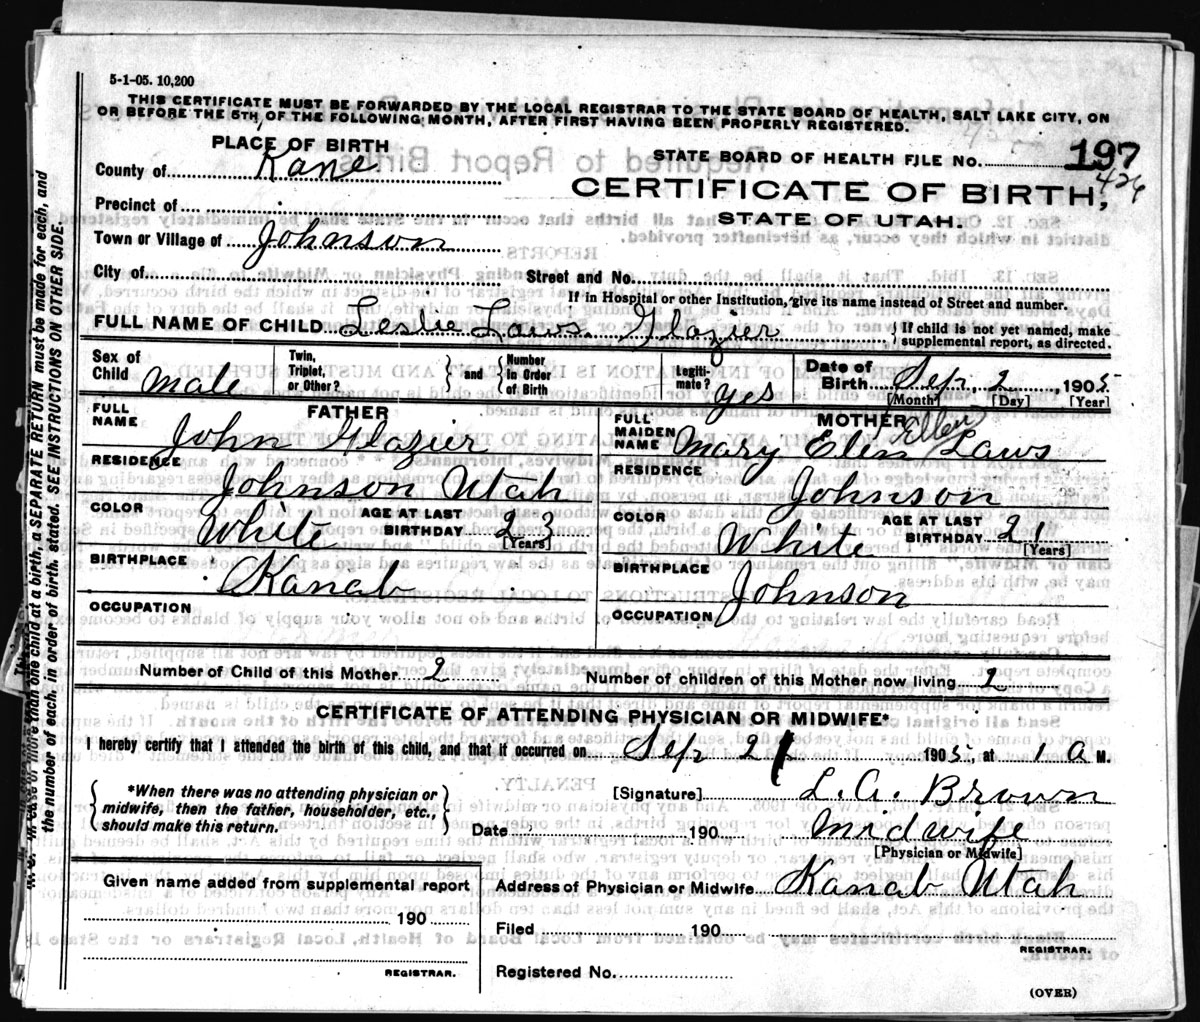 5-1-05. 10,200
THIS CERTIFICATE MUST BE FORWARDED BY THE LOCAL REGISTRAR TO THE STATE BOARD OF HEALTH, SALT LAKE CITY, ON
OR BEFORE THE 5TH, OF THE FOLLOWING MONTH, AFTER FIRST HAVING BEEN PROPERLY REGISTERED.
PLACE OF BIRTH
STATE BOARD OF HEALTH FILE NO. 197
426
County of Kane
CERTIFICATE OF BIRTH,
Precinct of
STATE OF UTAH.
Town or Village of Johnson
City of
Street and No.
If in Hospital or other Institution, give its name instead of Street and number.
FULL NAME OF CHILD Leslie Laws Glazier
If child is not yet named, make
supplemental report, as directed.
Sex of Child male
Twin, Triplet, or Other?
and
Number in Order of Birth
Legiti-mate? yes
Date of Birth Sep, 2, 1905
[Month] [Day] [Year]
FATHER
FULL NAME John Glazier
RESIDENCE Johnson Utah
COLOR White
AGE AT LAST BIRTHDAY 23
[Years]
BIRTHPLACE Kanab
OCCUPATION
MOTHER
FULL MAIDEN NAME Mary Elen Laws
Ellen
RESIDENCE Johnson
COLOR White
AGE AT LAST BIRTHDAY 21
[Years]
BIRTHPLACE Johnson
OCCUPATION
Number of Child of this Mother 2
Number of children of this Mother now living 2
CERTIFICATE OF ATTENDING PHYSICIAN OR MIDWIFE*
I hereby certify that I attended the birth of this child, and that if occurred on Sep 2 1905, at 1 A M.
*When there was no attending physician or
midwife, then the father, householder, etc.,
should make this return.
[Signature] L. A. Brown
Date 190
Midwife
[Physician or Midwife]
Address of Physician or Midwife Kanab Utah
Given name added from supplemental report
190
REGISTRAR.
Filed 190
REGISTRAR.
Registered No.
(OVER)
N. B. In case of more than one child at a birth, a SEPARATE RETURN must be made for each, and
the number of each, in order of birth, stated. SEE INSTRUCTIONS ON OTHER SIDE.